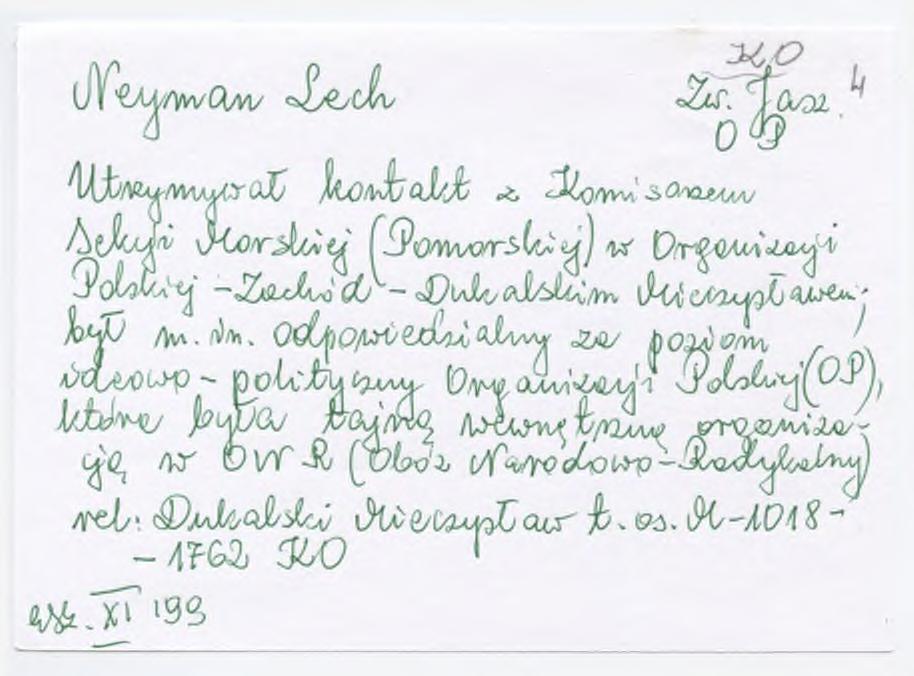 KO
Neyman Lech Zw. Jasz. 4
O P
Utrzymywał kontakt z Komisarzem
Sekcji Morskiej (Pomorskiej) w Organizacji
Polskiej - Zachód - Dukalskim Mieczysławem;
był m.in. odpowiedzialny za poziom
ideowo - polityczny Organizacji Polskiej (OP),
która była tajną wewnętrzną organiza-
cją w OWR (Obóz Narodowo-Radykalny)
rel: Dukalski Mieczysław t. os. M-1018-
- 1762 KO
XI 199